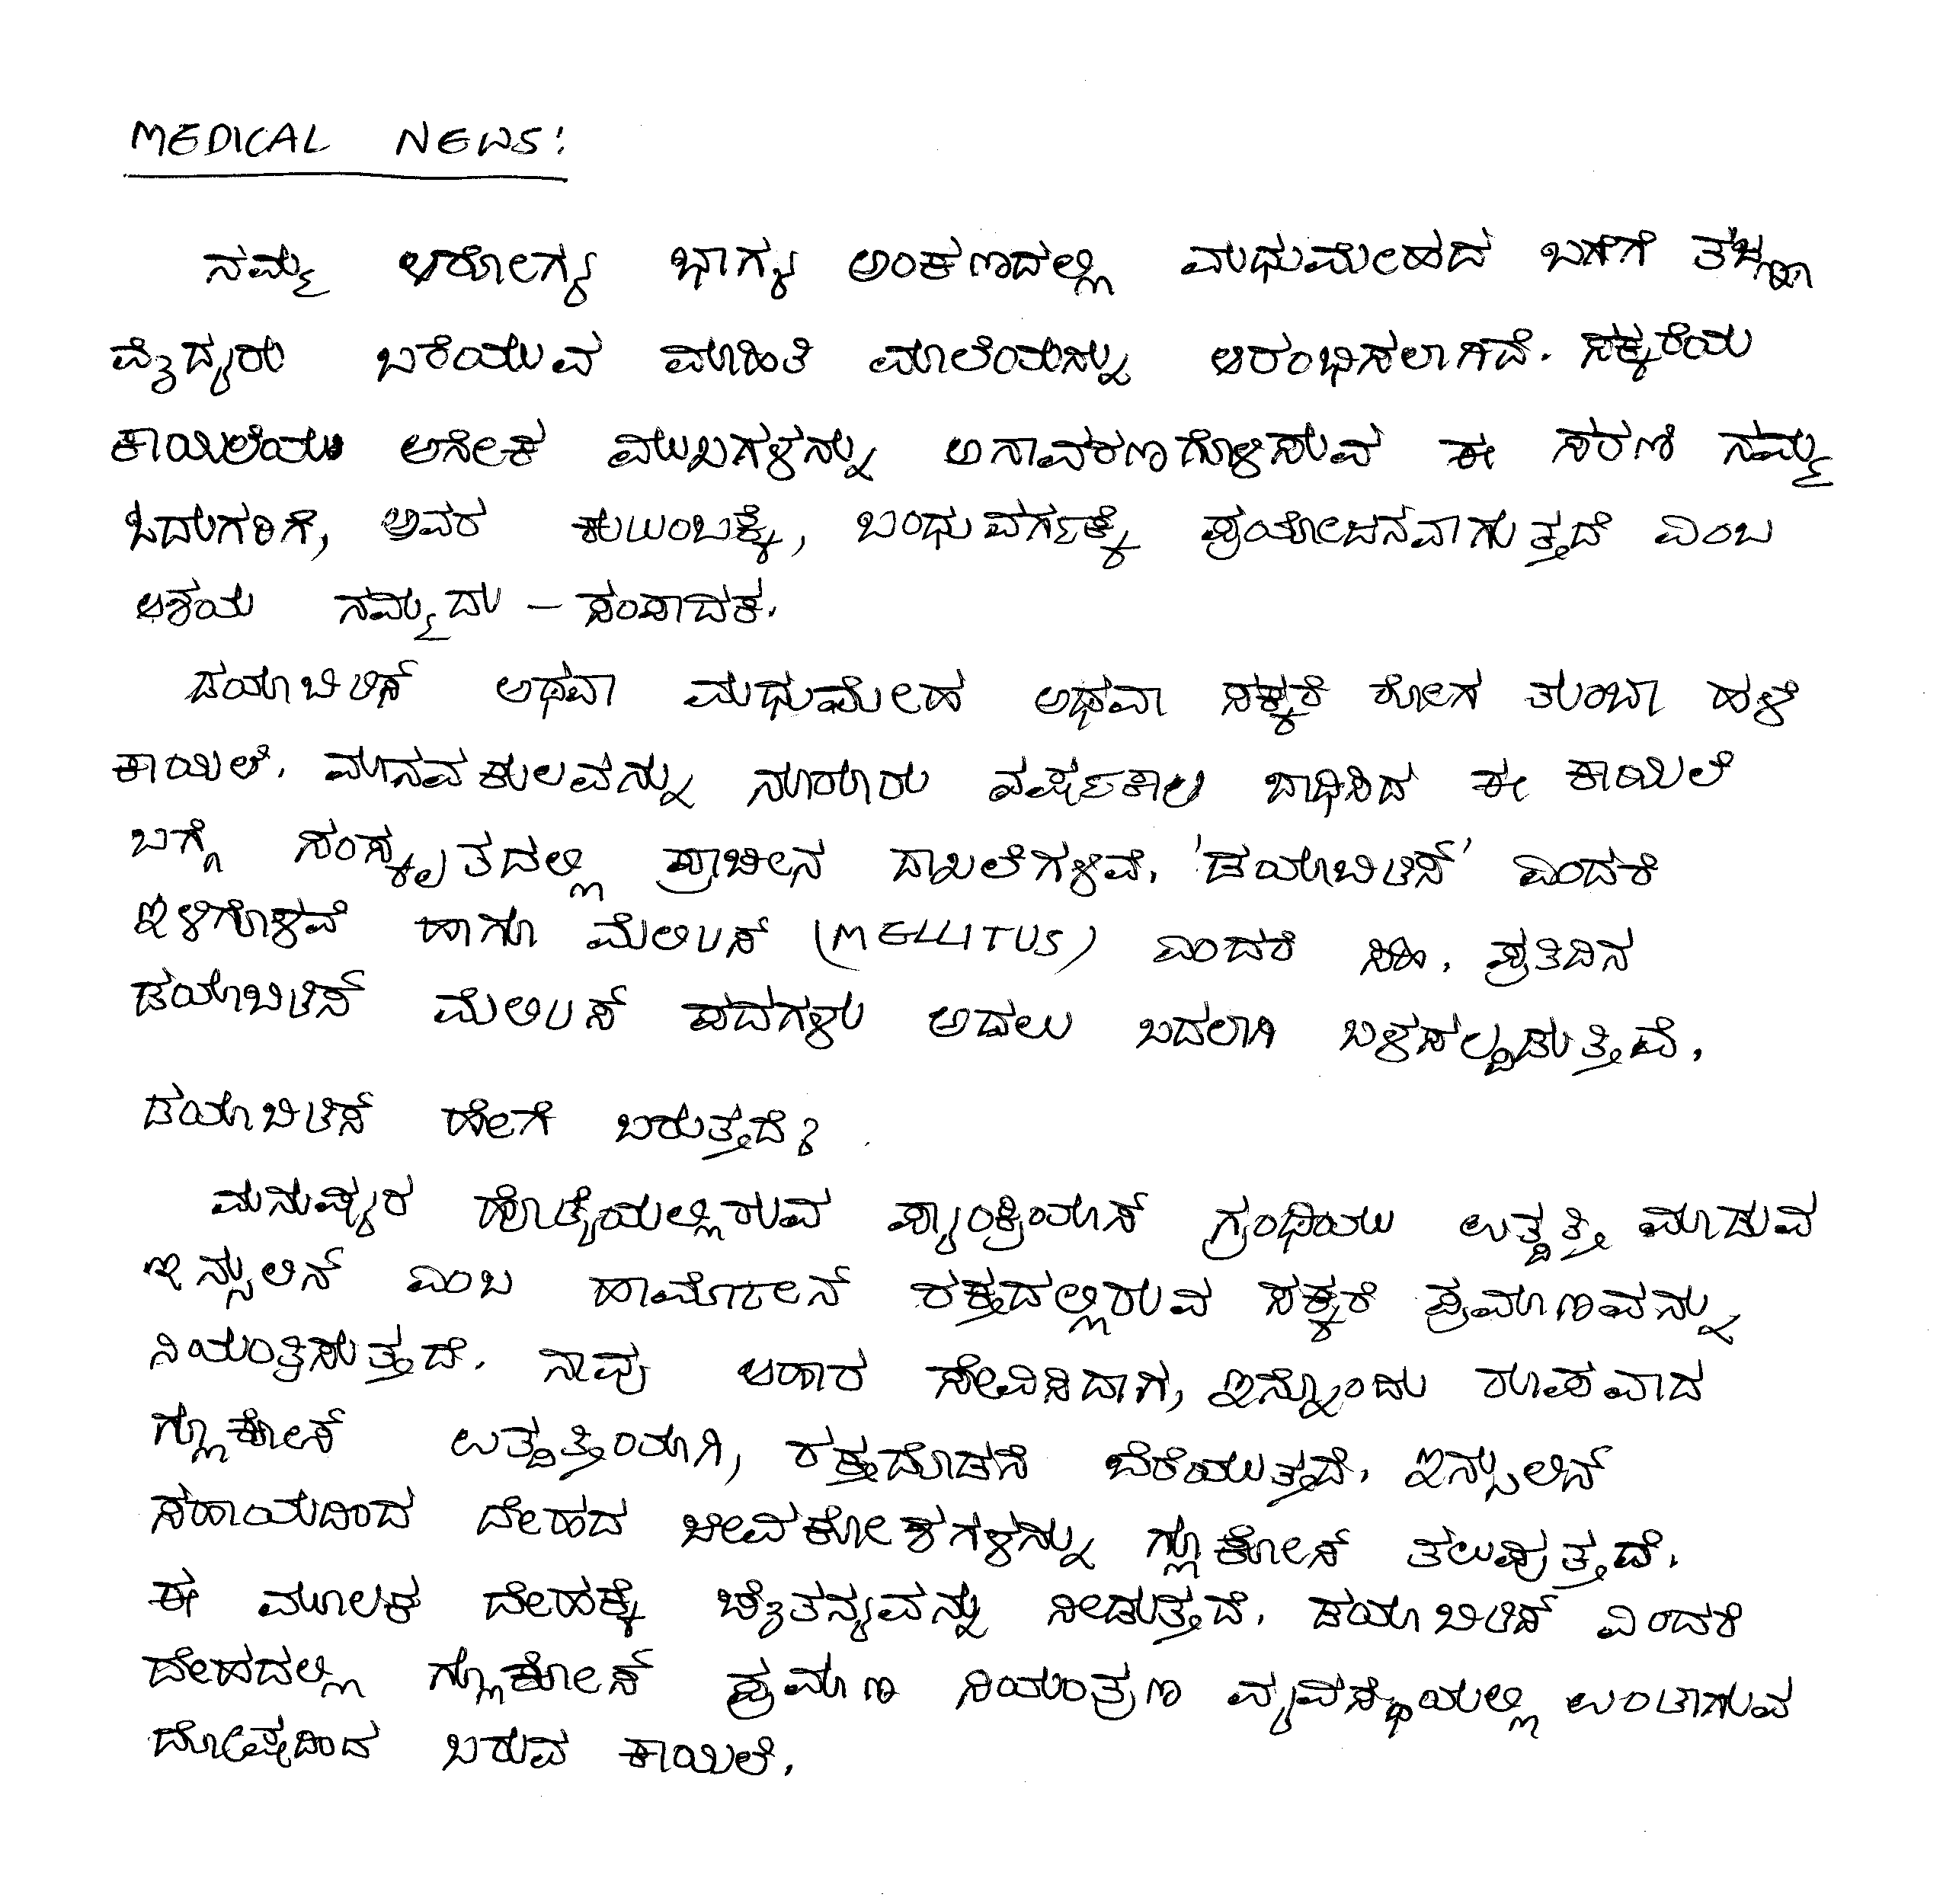 MEDICAL NEWS:
ನಮ್ಮ ಆರೋಗ್ಯ ಭಾಗ್ಯ ಅಂಕಣದಲ್ಲಿ ಮಧುಮೇಹದ ಬಗೆಗೆ ತಜ್ಞ
ವೈದ್ಯರು ಬರೆಯುವ ಮಾಹಿತಿ ಮಾಲೆಯನ್ನು ಆರಂಭಿಸಲಾಗಿದೆ. ಸಕ್ಕರೆಯ
ಕಾಯಿಲೆಯ ಅನೇಕ ಮುಖಗಳನ್ನು ಅನಾವರಣಗೊಳಿಸುವ ಈ ಸರಣಿ ನಮ್ಮ
ಓದುಗರಿಗೆ, ಅವರ ಕುಟುಂಬಕ್ಕೆ, ಬಂಧುವರ್ಗಕ್ಕೆ ಪ್ರಯೋಜನವಾಗುತ್ತದೆ ಎಂಬ
ಆಶಯ ನಮ್ಮದು - ಸಂಪಾದಕ.
ಡಯಾಬಿಟಿಸ್ ಅಥವಾ ಮಧುಮೇಹ ಅಥವಾ ಸಕ್ಕರೆ ರೋಗ ತುಂಬಾ ಹಳೆ
ಕಾಯಿಲೆ. ಮಾನವಕುಲವನ್ನು ನೂರಾರು ವರ್ಷಕಾಲ ಬಾಧಿಸಿದ ಈ ಕಾಯಿಲೆ
ಬಗ್ಗೆ ಸಂಸ್ಕೃತದಲ್ಲಿ ಪ್ರಾಚೀನ ದಾಖಲೆಗಳಿವೆ. 'ಡಯಾಬಿಟಿಸ್' ಎಂದರೆ
ಇಳಿಗೊಳವೆ ಹಾಗೂ ಮೆಲಿಟಸ್ (MELLITUS) ಎಂದರೆ ಸಿಹಿ. ಪ್ರತಿದಿನ
ಡಯಾಬಿಟಿಸ್ ಮೆಲಿಟಸ್ ಪದಗಳು ಅದಲು ಬದಲಾಗಿ ಬಳಸಲ್ಪಡುತ್ತಿವೆ.
ಡಯಾಬಿಟಿಸ್ ಹೇಗೆ ಬರುತ್ತದೆ?
ಮನುಷ್ಯರ ಹೊಟ್ಟೆಯಲ್ಲಿರುವ ಪ್ಯಾಂಕ್ರಿಯಾಸ್ ಗ್ರಂಥಿಯು ಉತ್ಪತ್ತಿ ಮಾಡುವ
ಇನ್ಸುಲಿನ್ ಎಂಬ ಹಾರ್ಮೋನ್ ರಕ್ತದಲ್ಲಿರುವ ಸಕ್ಕರೆ ಪ್ರಮಾಣವನ್ನು
ನಿಯಂತ್ರಿಸುತ್ತದೆ. ನಾವು ಆಹಾರ ಸೇವಿಸಿದಾಗ, ಇನ್ನೊಂದು ರೂಪವಾದ
ಗ್ಲೂಕೋಸ್ ಉತ್ಪತ್ತಿಯಾಗಿ, ರಕ್ತದೊಡನೆ ಬೆರೆಯುತ್ತದೆ. ಇನ್ಸುಲಿನ್
ಸಹಾಯದಿಂದ ದೇಹದ ಜೀವಕೋಶಗಳನ್ನು ಗ್ಲೂಕೋಸ್ ತಲುಪುತ್ತದೆ.
ಈ ಮೂಲಕ ದೇಹಕ್ಕೆ ಚೈತನ್ಯವನ್ನು ನೀಡುತ್ತದೆ. ಡಯಾಬಿಟಿಸ್ ಎಂದರೆ
ದೇಹದಲ್ಲಿ ಗ್ಲೂಕೋಸ್ ಪ್ರಮಾಣ ನಿಯಂತ್ರಣ ವ್ಯವಸ್ಥೆಯಲ್ಲಿ ಉಂಟಾಗುವ
ದೋಷದಿಂದ ಬರುವ ಕಾಯಿಲೆ.